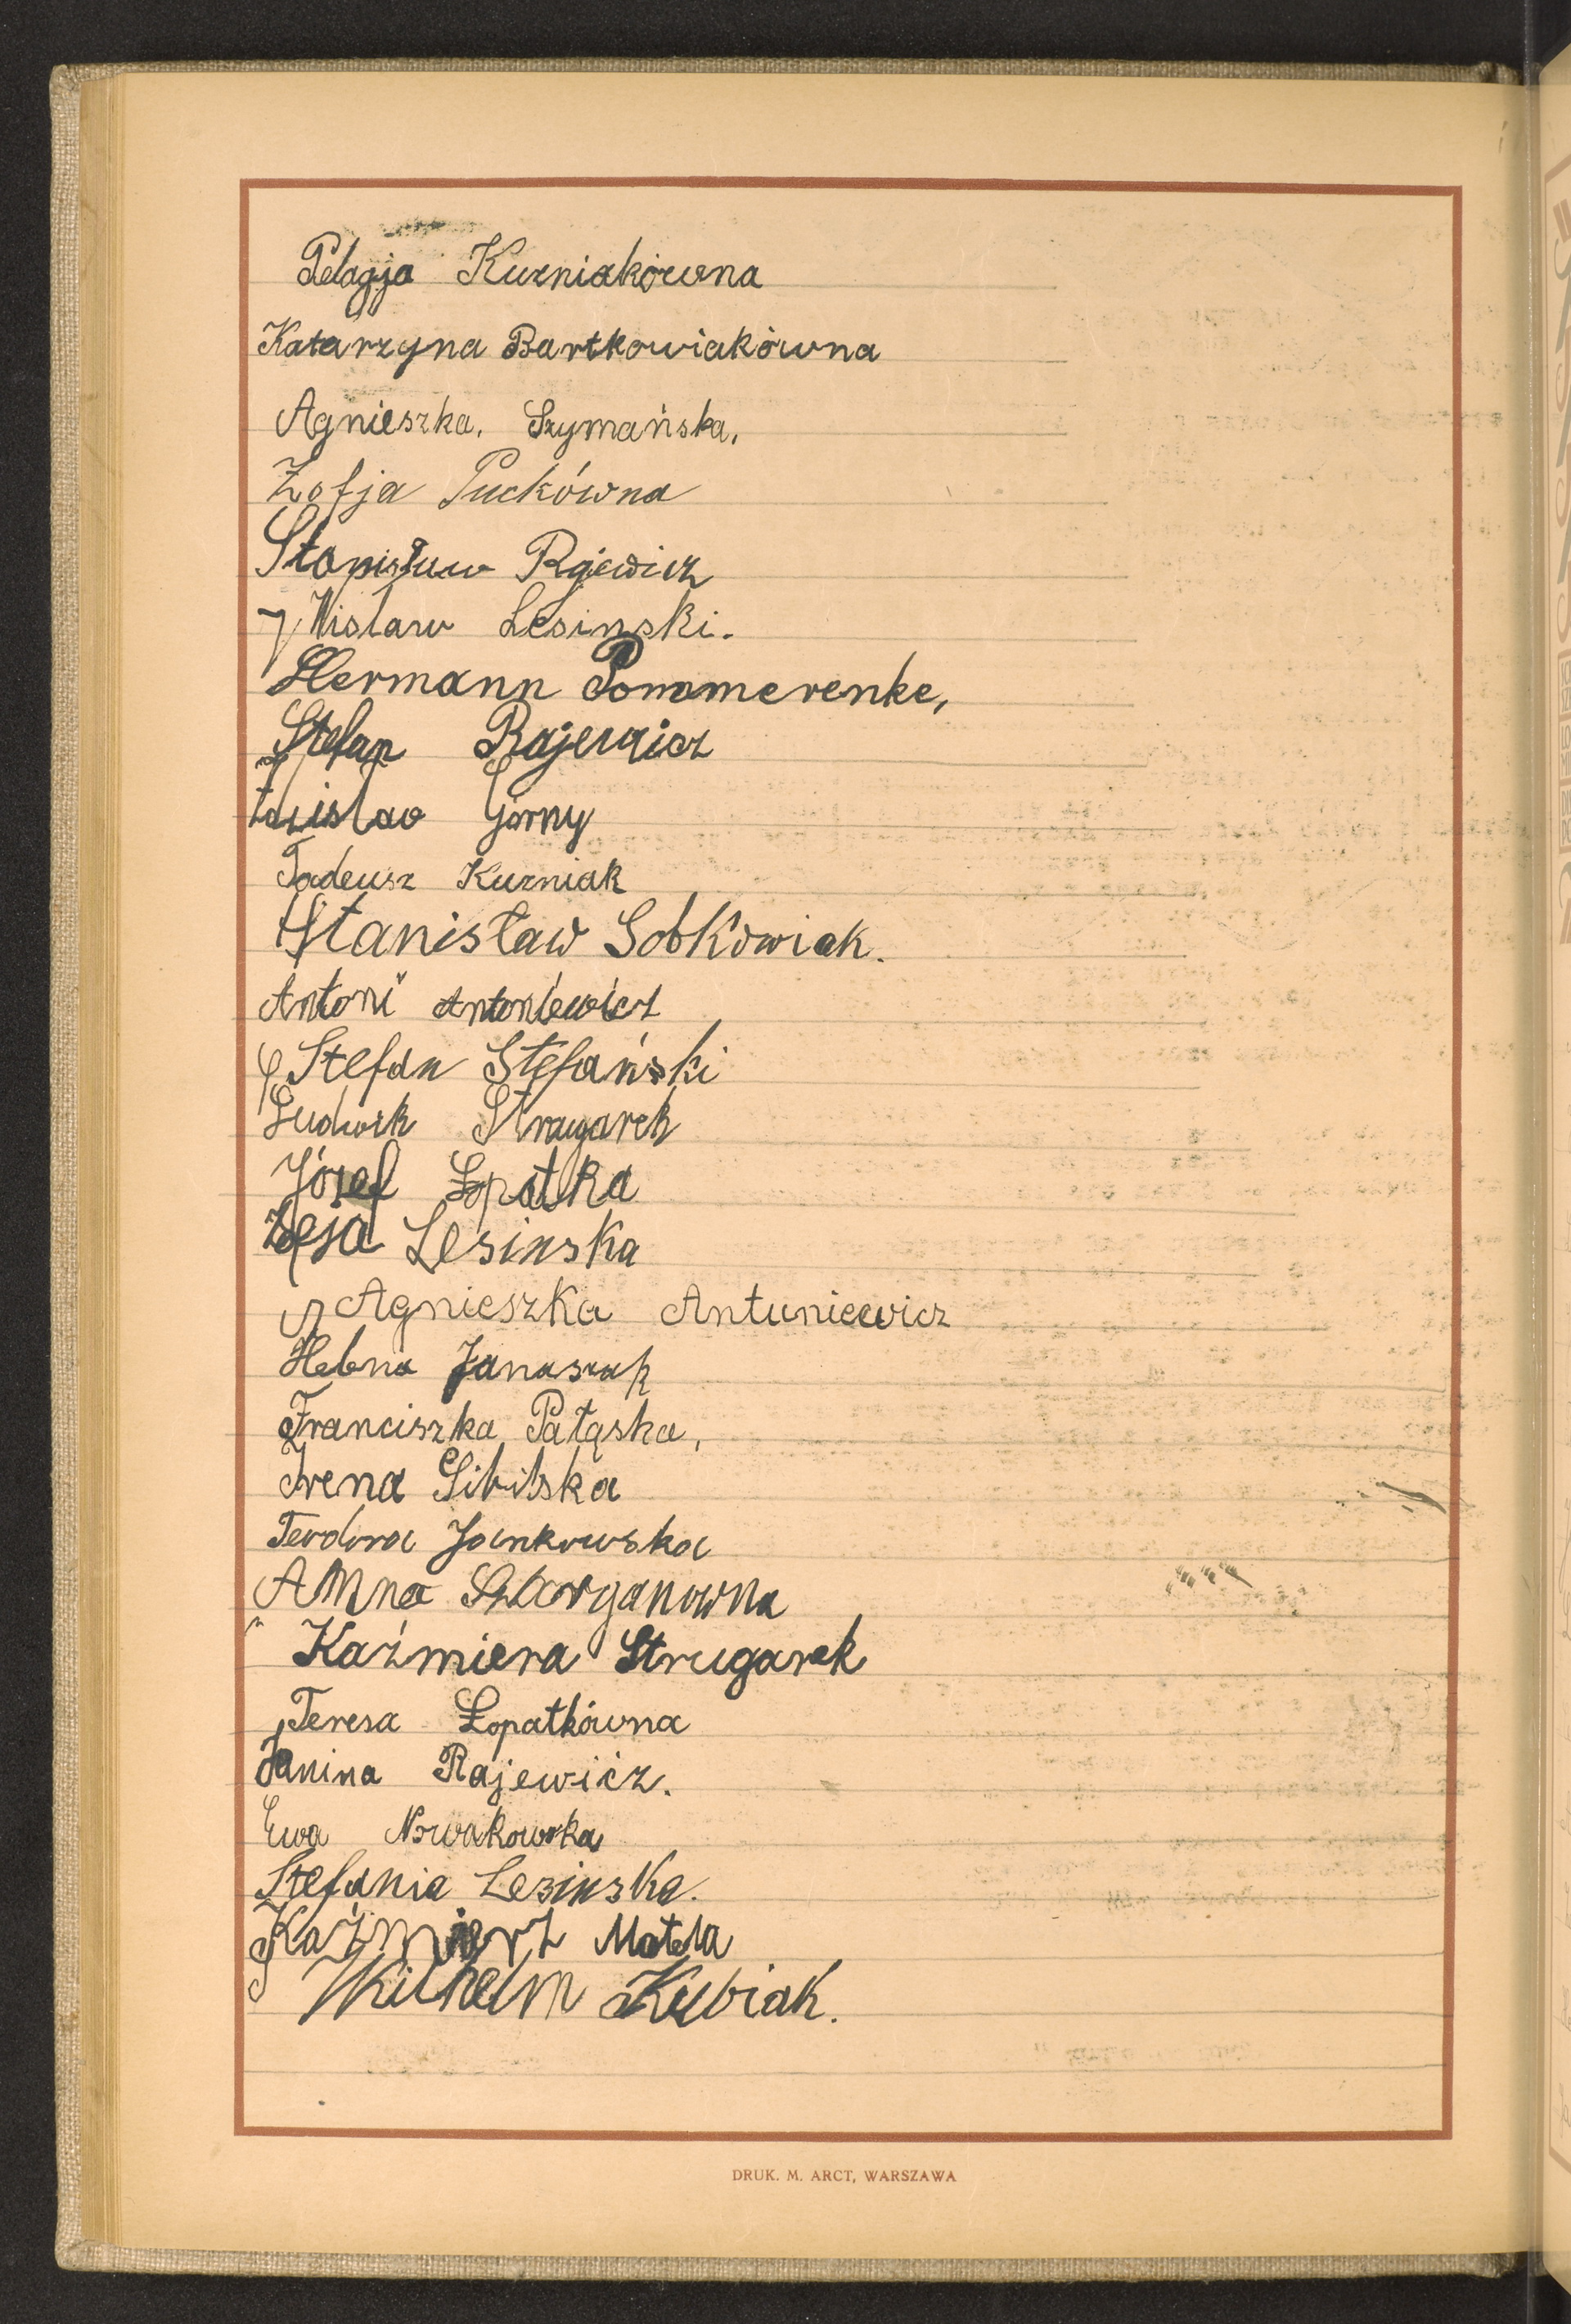 Pelagja Kuzniakówna
Katarzyna Bartkowiakówna
Agnieszka. Szymańska.
Zofja Puckówna
Stanisław Rajewicz
Wislaw Lesinski.
Hermann Pommerenke,
Stefan Rajewicz
Zdzislaw Górny
Tadeusz Kuzniak
Stanisław Sobkowiak.
Antoni Antoniewicz
Stefan Stefański
Ludwik Strugarek
Józef Łopatka
Zofja Lesinska
Agnieszka Antuniewicz
Helena Janaszak
Franciszka Patąska,
Irena Sibilska
Teodora Jankowska
Anna
Kaźmiera Strugarek
Teresa Łopatkówna
Janina Rajewicz.
Ewa Nowakowska
Stefania Lesinska.
Kaźmierz Matela
Wilhelm Kubiak.
DRUK. M. ARCT, WARSZAWA